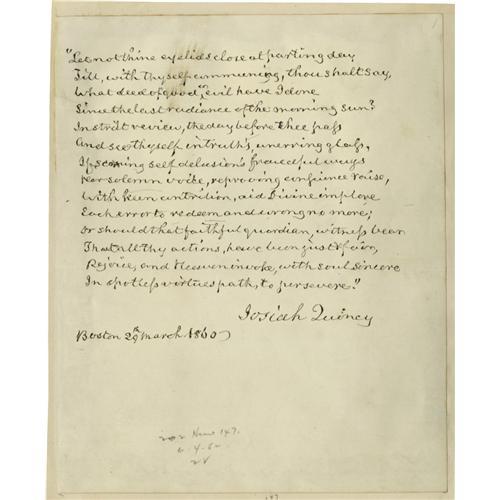 "Let not thine eyelids close at parting day
Till, with thyself communing, thou shalt say,
What deed of good, or evil have I done
Since the last radiance of the morning sun?
In strict review, the day before thee pass
And see thyself in truth's, unerring glass,
If, scorning self delusion's fraudful ways
Her solemn voice, reproving conscience raise,
With keen contrition, aid Divine implore
Each error to redeem and wrong no more;
Or should that faithful guardian, witness bear
That all thy actions, have been just & fair,
Rejoice, and Heaven invoke, with soul sincere
In spotless virtue's path, to persevere."
Josiah Quincy
Boston 29th March 1860
147.